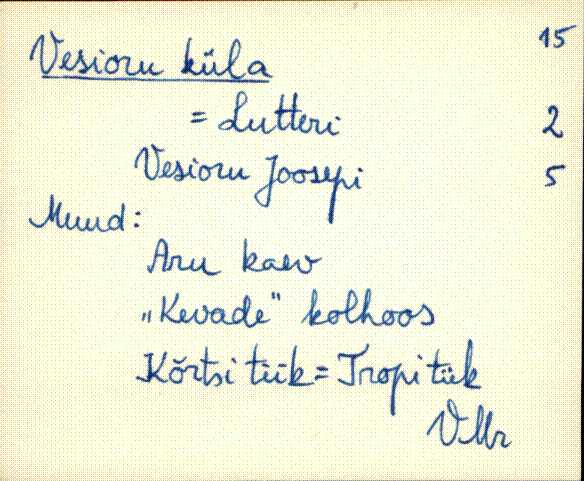 15
Vesioru küla
= Lutteri 2
Vesioru Joosepi 5
Muud:
Aru kaev
„Kevade" kolhoos
Kõrtsi tiik = Tropi tiik
VMr